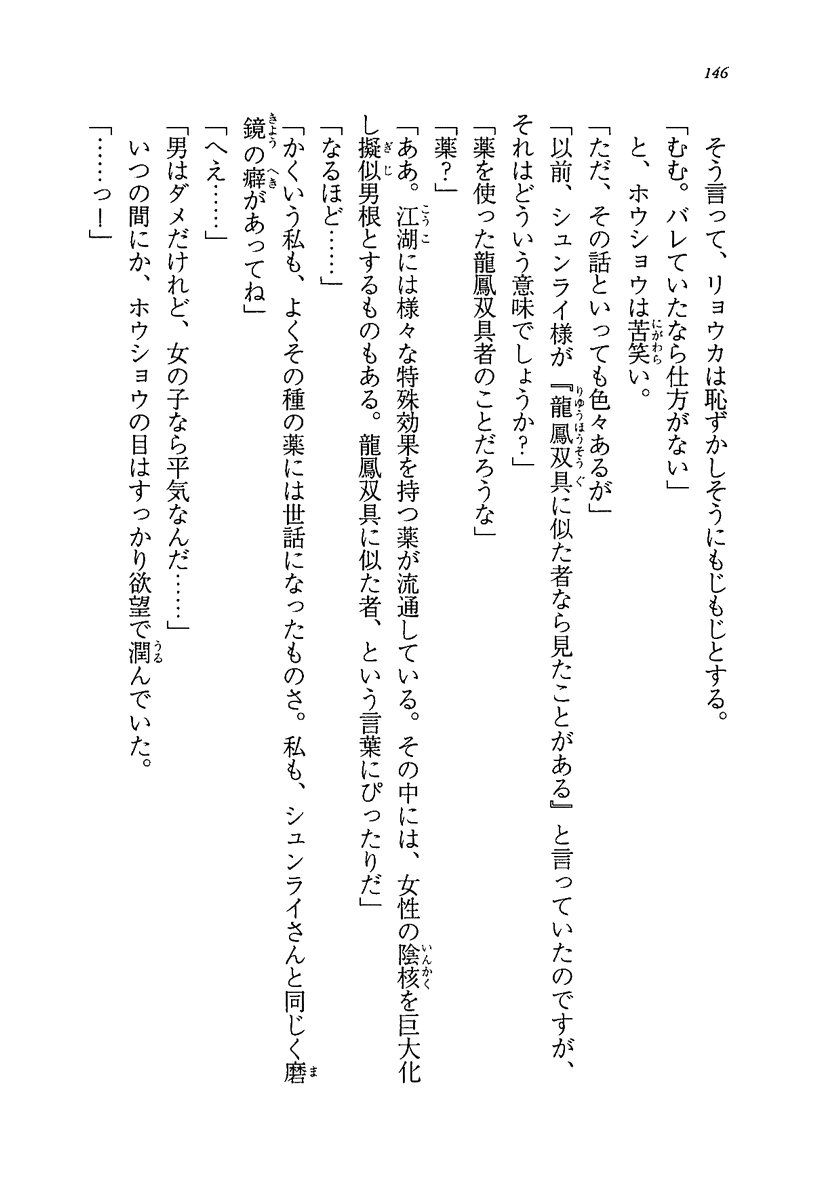 146
そう言って、リョウカは恥ずかしそうにもじもじとする。
「むむ。バレていたなら仕方がない」
と、ホウショウは苦笑い。
「ただ、その話といっても色々あるが」
「以前、シュンライ様が『龍鳳双具に似た者なら見たことがある』と言っていたのですが、
それはどういう意味でしょうか？」
「薬を使った龍鳳双具者のことだろうな」
「薬？」
「ああ。江湖には様々な特殊効果を持つ薬が流通している。その中には、女性の陰核を巨大化
し擬似男根とするものもある。龍鳳双具に似た者、という言葉にぴったりだ」
「なるほど……」
「かくいう私も、よくその種の薬には世話になったものさ。私も、シュンライさんと同じく磨
鏡の癖があってね」
「へえ……」
「男はダメだけれど、女の子なら平気なんだ……」
いつの間にか、ホウショウの目はすっかり欲望で潤んでいた。
「……っ！」